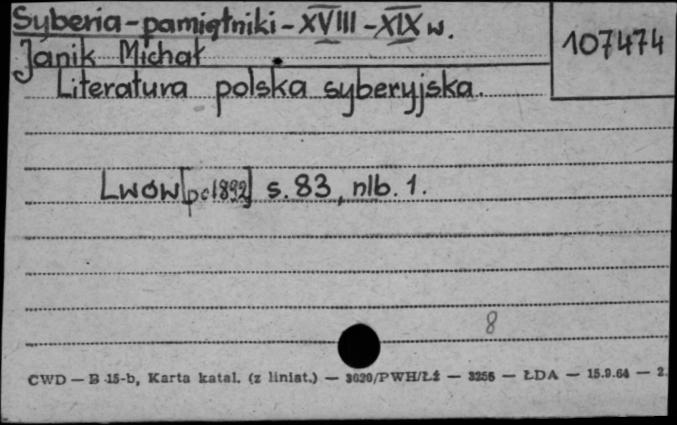 Syberia - pamiętniki - XVIII - XIX w.
107474
Janik Michał
Literatura polska syberyjska.
Lwów [po 1892] s. 83, nlb. 1.
8
CWD — B 15-b, Karta katal. (z liniat.) — 3020/PWH/Łź — 3256 — ŁDA — 15.9.64 — 2.